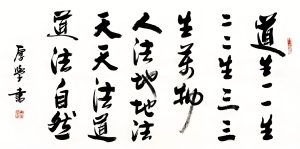 道生一一生
二二生三三
生萬物
人法地地法
天天法道
道法自然
厚學書